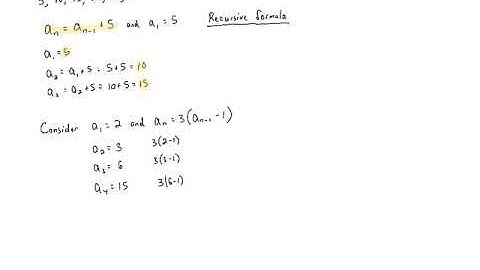 5, 10,
aₙ = aₙ₋₁ + 5 and a₁ = 5 Recursive formula
a₁ = 5
a₂ = a₁ + 5 = 5+5 = 10
a₃ = a₂ + 5 = 10+5 = 15
Consider a₁ = 2 and aₙ = 3(aₙ₋₁ - 1)
a₂ = 3 3(2-1)
a₃ = 6 3(3-1)
a₄ = 15 3(6-1)